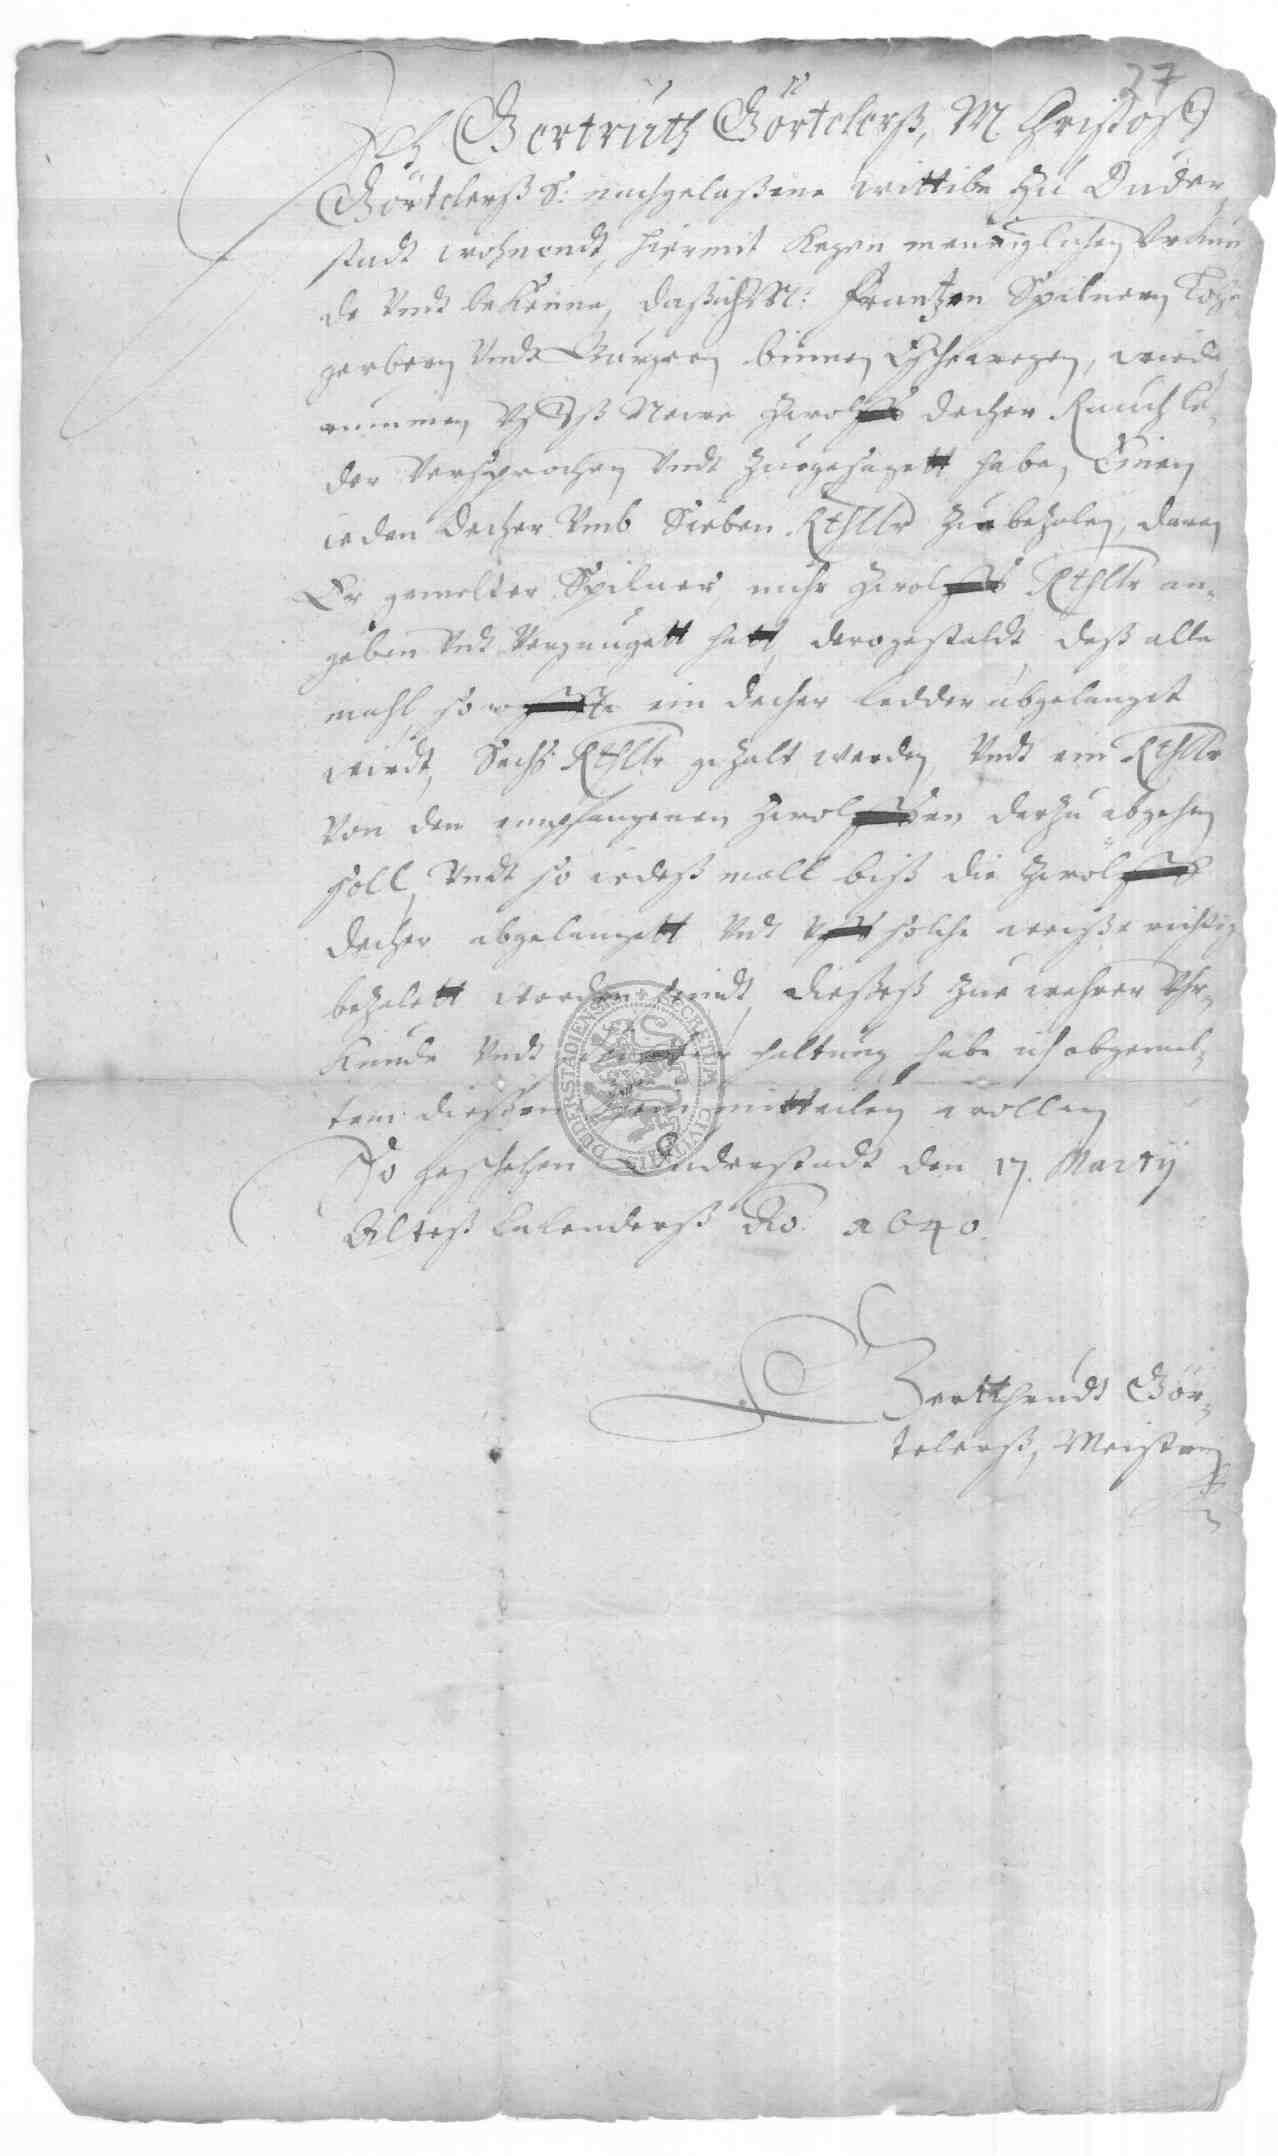 27
Ich Gertruth Görtelerß, M. Christoff
Görtelerß S: nachgelaßene wittibe zu Duder„
stadt wohnendt, hiermit kegen menniglichen Vrkun
de Vndt bekenne, daß ich M: Frantzen Spilnern Loh„
gerbern Vndt Burgern binnen Eschewegen, wiede„
rummen Vf Newe zwolff decher Rauch le„
der Versprochen Vndt zuegesagett habe, Einen
ieden decher Vmb Sieben Rthllr zu bezalen, daran
Er gemelter Spilner, mihr zwolff Rthllr an„
geben Vndt Vergnugett hatt, derogestaldt, deß alle
mahl, so ein decher ledder abgelanget
wirdt, Sechß Rthllr gezalt werden, Vndt ein Rthllr
Von den empfangenen zwolffen darzu abgehen
soll, Vndt so iedeß mall biß die zwölff
decher abgelangett Vndt vff solche weiße richtig
bezalett worden sindt, dießeß zue wahrer Vhr„
kunde Vndt haltung habe ich obgemel„
tem dießen mitteilen wollen
So geschehen Duderstadt den 17. Martij
Alteß Calenderß Ao. 1640.
SECRETUM CIVITATIS DUDERSTADIENSIS
Gerttheudt Gör„
telerß, Meistern